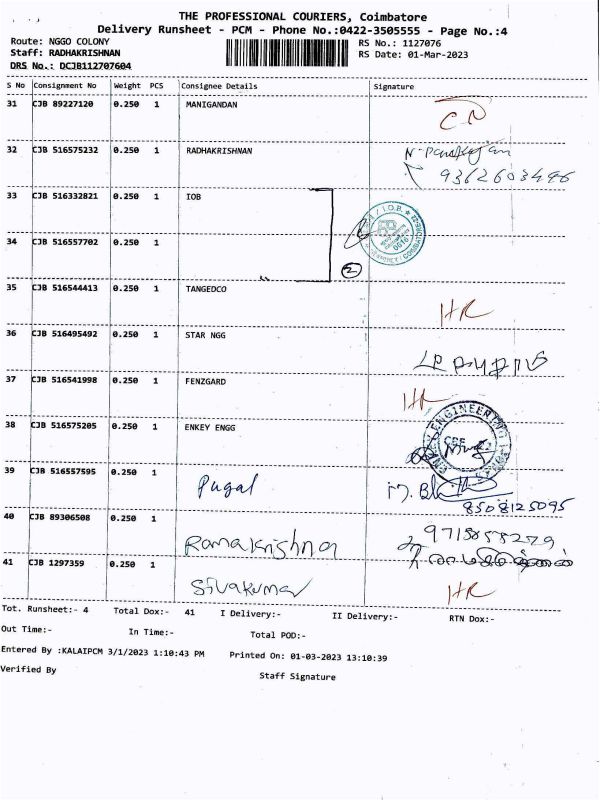 THE PROFESSIONAL COURIERS, Coimbatore
Delivery Runsheet - PCM - Phone No.:0422-3505555 - Page No.:4
Route: NGGO COLONY
RS No.: 1127076
Staff: RADHAKRISHNAN
RS Date: 01-Mar-2023
DRS No.: DCJB112707604
S No Consignment No Weight PCS Consignee Details Signature
31 CJB 89227120 0.250 1 MANIGANDAN
32 CJB 516575232 0.250 1 RADHAKRISHNAN
9362603496
33 CJB 516332821 0.250 1 IOB
34 CJB 516557702 0.250 1
2
35 CJB 516544413 0.250 1 TANGEDCO HR
36 CJB 516495492 0.250 1 STAR NGG
37 CJB 516541998 0.250 1 FENZGARD HR
38 CJB 516575205 0.250 1 ENKEY ENGG
39 CJB 516557595 0.250 1 Pugal
8508125095
40 CJB 89306508 0.250 1 Ramakrishnan 9715858279
41 CJB 1297359 0.250 1 Sivakumar HR
Tot. Runsheet:- 4 Total Dox:- 41 I Delivery:- II Delivery:- RTN Dox:-
Out Time:- In Time:- Total POD:-
Entered By :KALAIPCM 3/1/2023 1:10:43 PM Printed On: 01-03-2023 13:10:39
Verified By Staff Signature